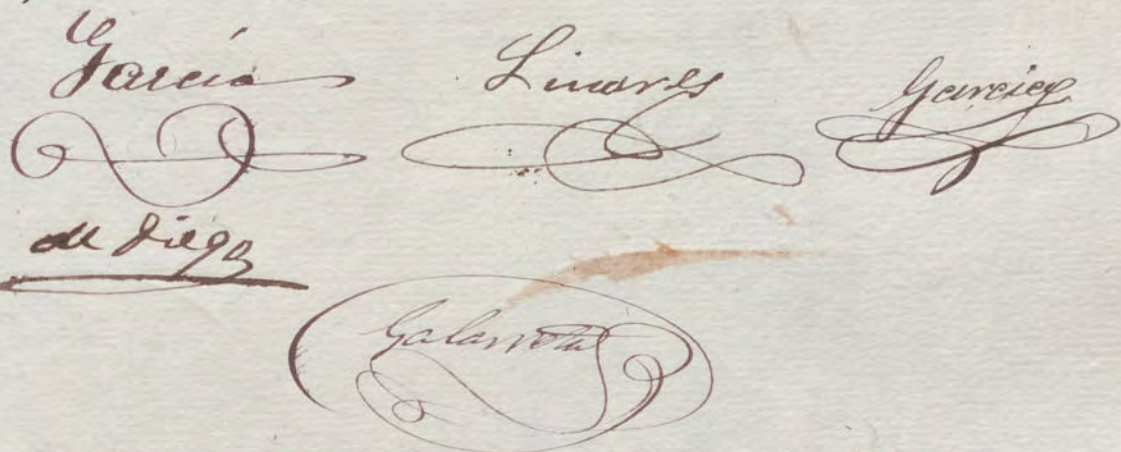 García Linares García
de Diego
Galarreta